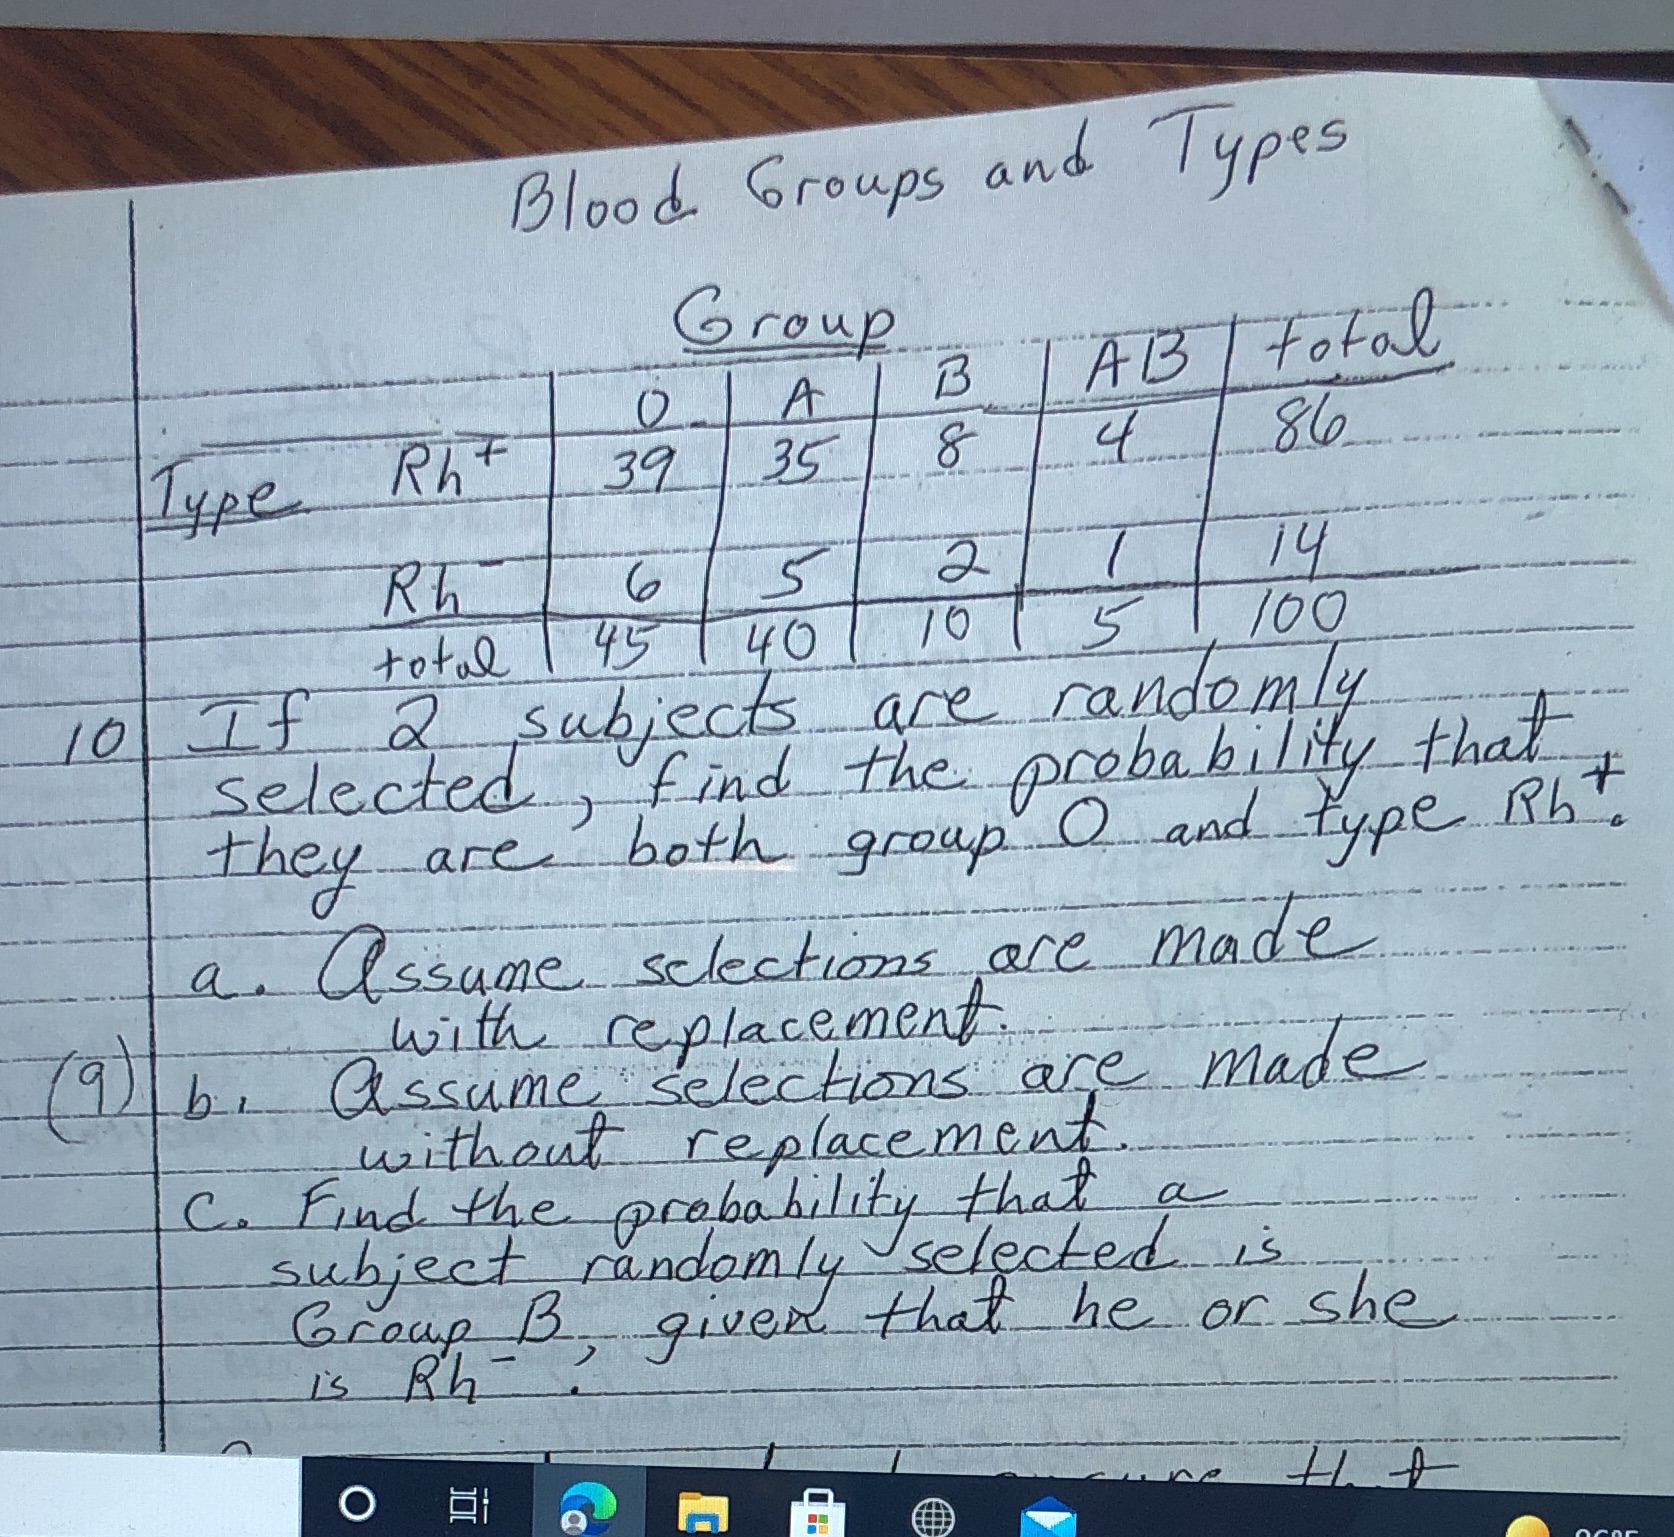 Blood Groups and Types
Group
O A B AB total
Type Rh+ 39 35 8 4 86
Rh- 6 5 2 1 14
total 45 40 10 5 100
10 If 2 subjects are randomly
selected, find the probability that
they are both group O and type Rh+.
a. Assume selections are made
with replacement.
(9) b. Assume selections are made
without replacement.
c. Find the probability that a
subject randomly selected is
Group B, given that he or she
is Rh-.